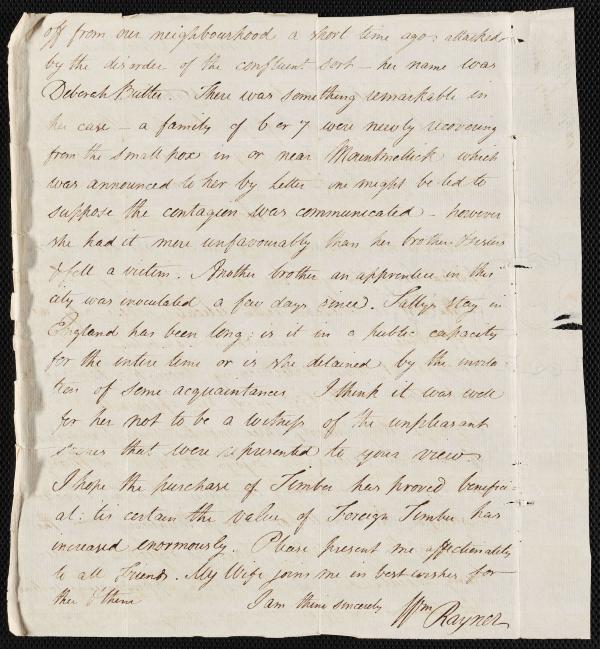 off from our neighbourhood a short time ago: attacked
by the disorder of the confluent sort – her name was
Deborah Butler. There was something remarkable in
her case – a family of 6 or 7 were newly recovering
from the small pox in or near Mountmellick which
was announced to her by letter one might be led to
suppose the contagion was communicated – however
she had it more unfavourably than her brothers & sisters
& fell a victim. Another brother an apprentice in this
city was inoculated a few days since. Sallys stay in
England has been long: is it in a public capacity
for the entire time or is she detained by the invita-
tion of some acquaintances I think it was well
for her not to be a witness of the unpleasant
scenes that were represented to your view
I hope the purchase of Timber has proved benefici-
al: tis certain the value of Foreign Timber has
increased enormously. Please present me affectionately
to all Friends. My Wife joins me in best wishes for
thee & thine
I am thine sincerely Wm Rayner